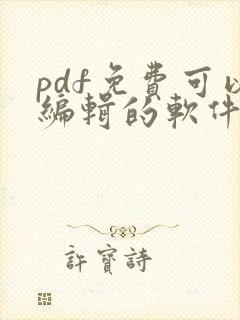 pdf免費可以
編輯的軟件
許寶詩